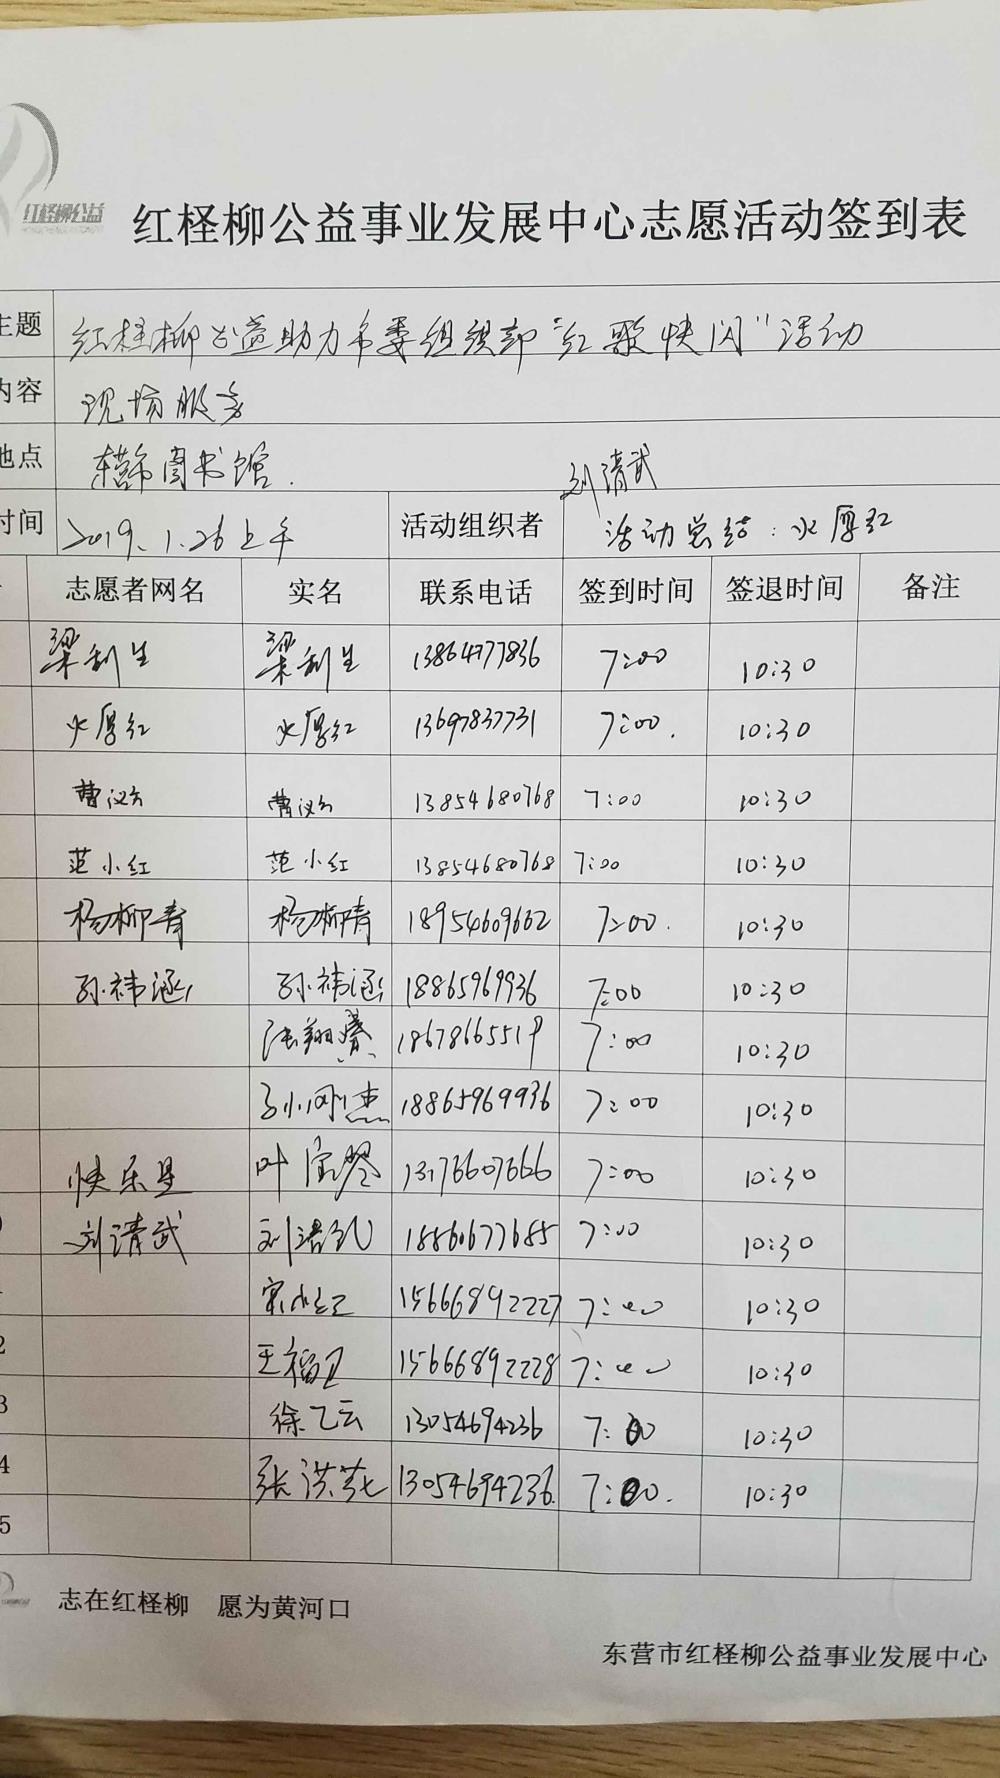 红柽柳公益
红柽柳公益事业发展中心志愿活动签到表
主题 红柽柳公益助力市委组织部“红歌快闪”活动
内容 现场服务
地点 东营市图书馆.
刘清武
时间 2019.1.26上午 活动组织者 活动总结:火厚红
志愿者网名 实名 联系电话 签到时间 签退时间 备注
梁利生 梁利生 13864777836 7:00 10:30
火厚红 火厚红 13697837731 7:00. 10:30
曹 曹 13854680768 7:00 10:30
范小红 范小红 13854680768 7:00 10:30
杨柳青 杨柳青 18954609662 7:00. 10:30
孙祎涵 孙祎涵 18865969936 7:00 10:30
翔 18678665519 7:00 10:30
孙刚杰 18865969936 7:00 10:30
快乐星 叶宝琴 13176607666 7:00 10:30
刘清武 刘清武 18860677685 7:00 10:30
宋小红 15666892227 7:00 10:30
王福卫 15666892228 7:00 10:30
2
徐乙云 13054694236 7:00 10:30
3
4 张洪花 13054694236. 7:00. 10:30
5
志在红柽柳 愿为黄河口
东营市红柽柳公益事业发展中心